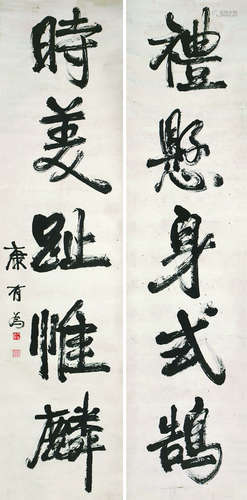 禮懸身式鵠
時美趾惟麟
康有為